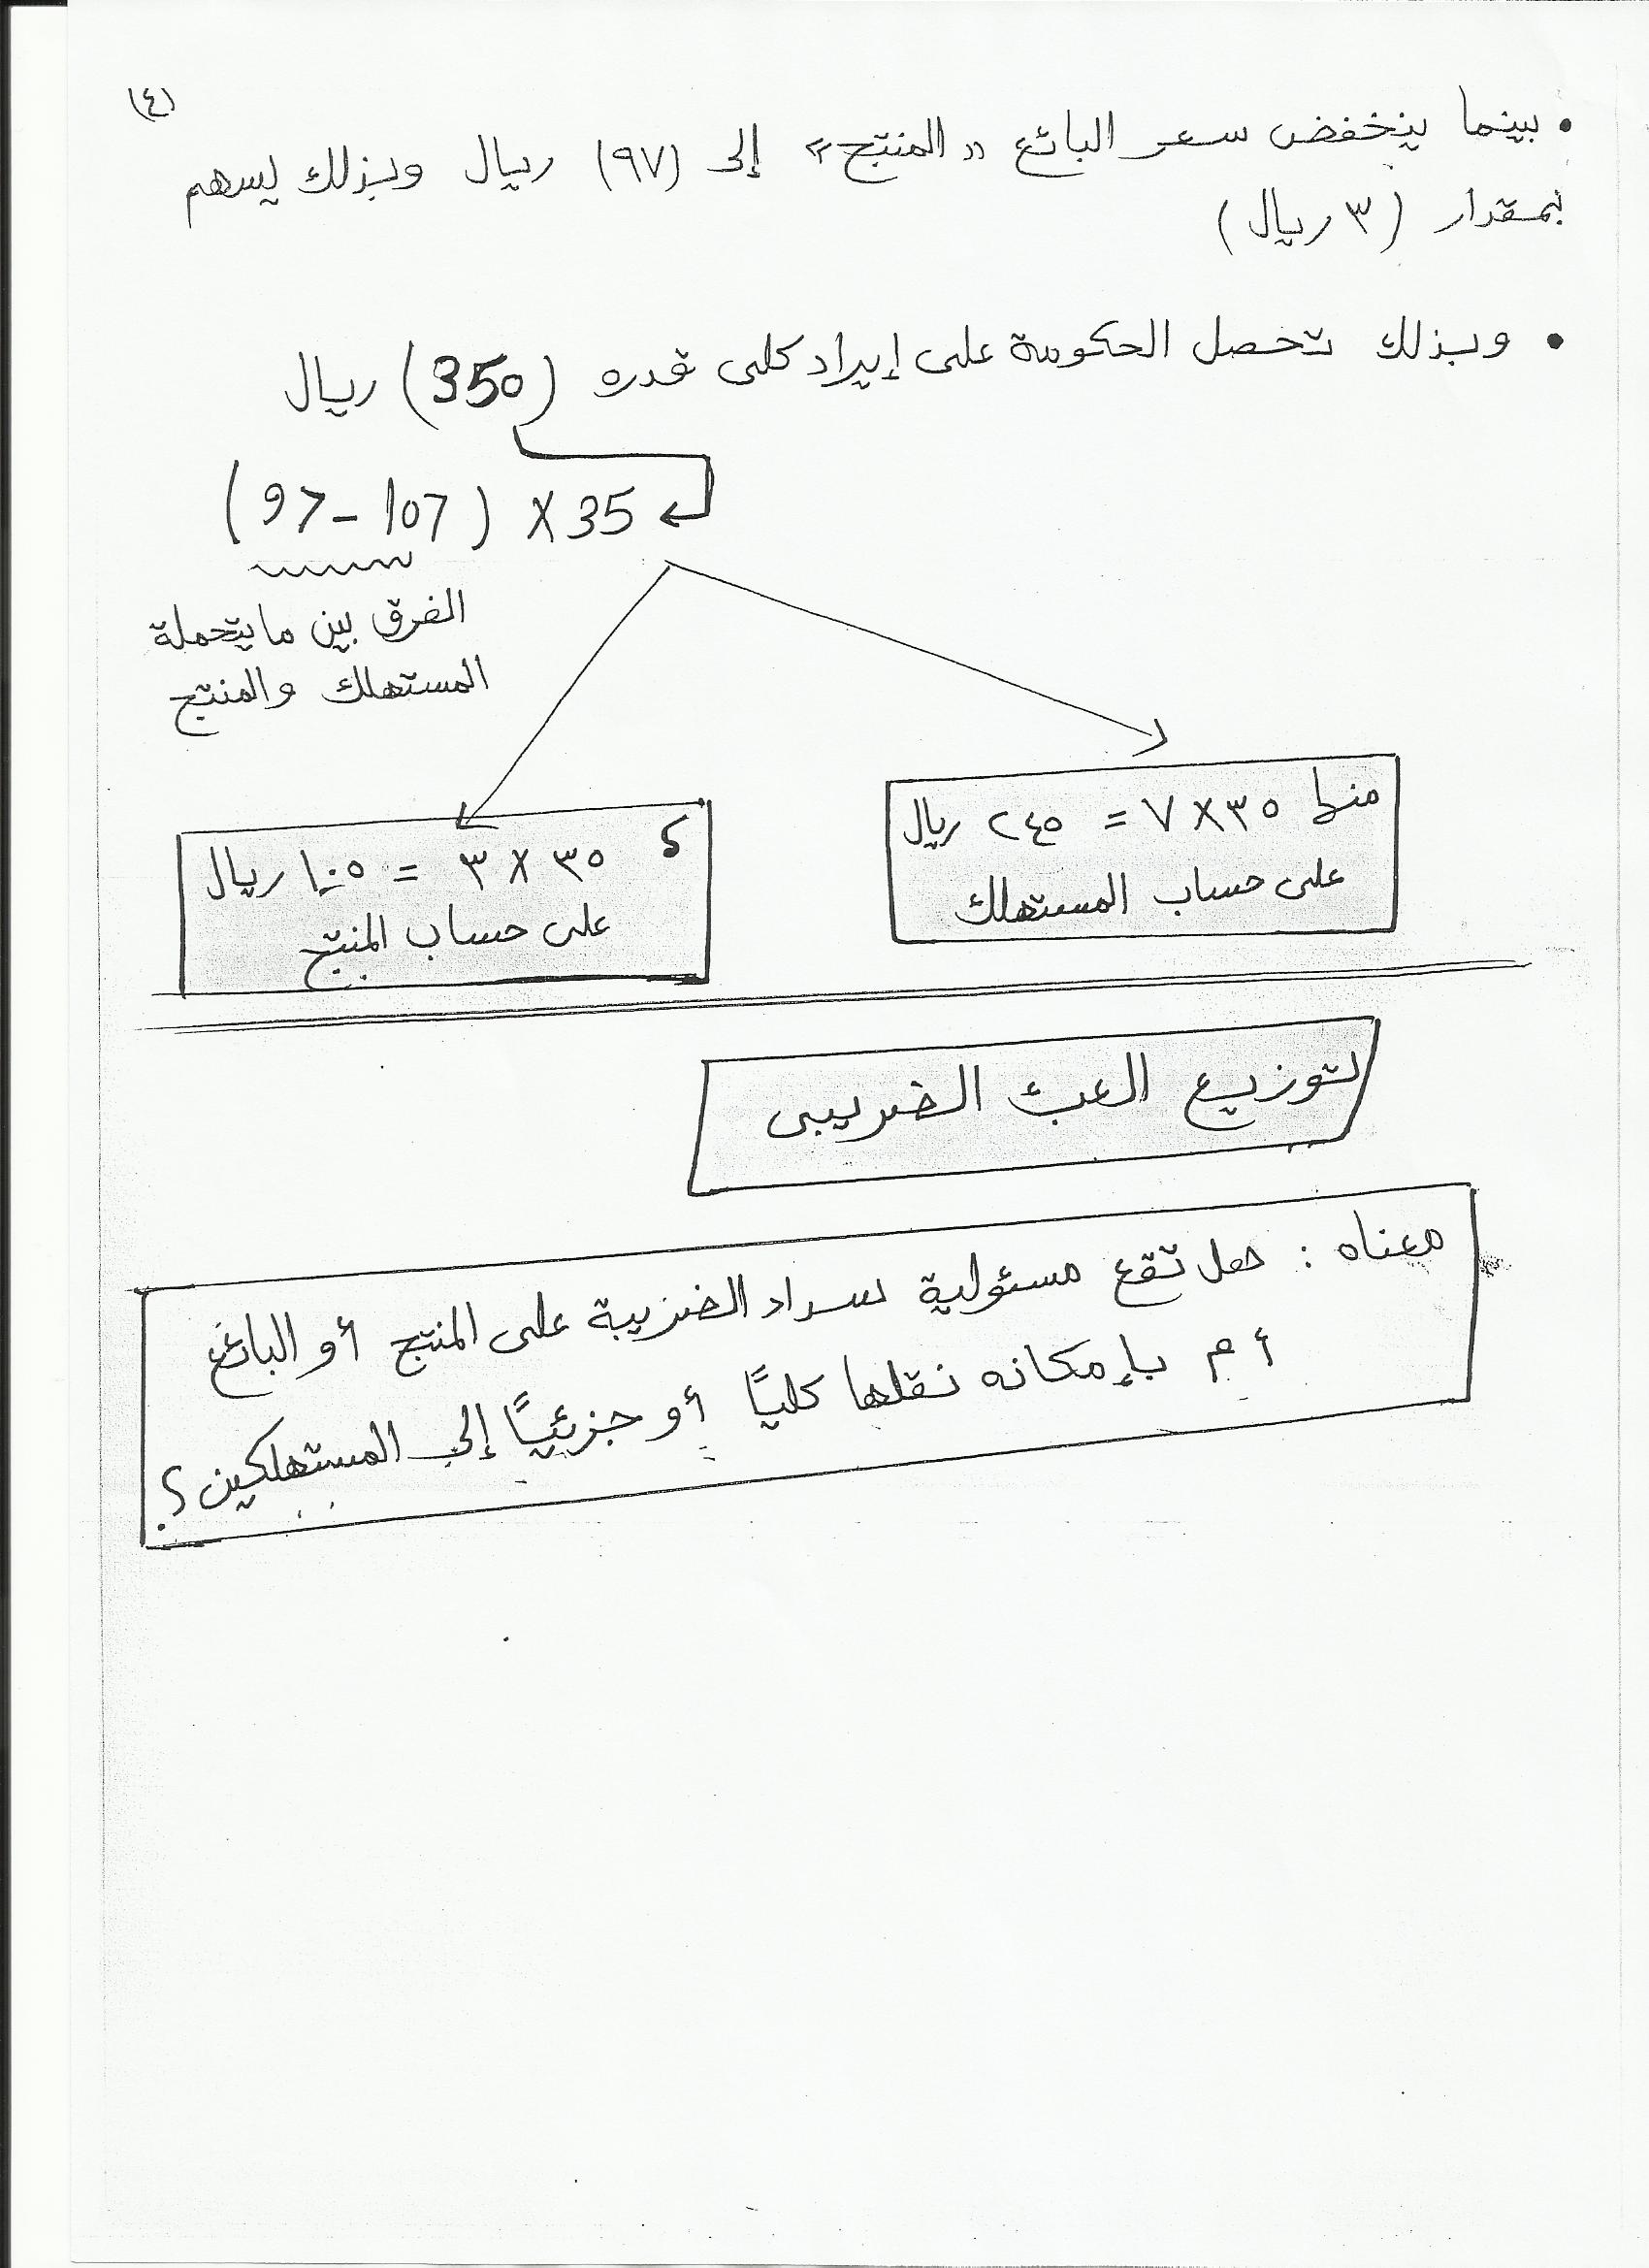 (٤)
• بينما ينخفض سعر البائع «المنتج» إلى (٩٧) ريال وبذلك يسهم
بمقدار (٣ ريال)
• وبذلك تحصل الحكومة على إيراد كلى قدره (350) ريال
35 X (107 - 97)
الفرق بين ما يتحملة
المستهلك والمنتج
منها ٣٥ X ٧ = ٢٤٥ ريال
على حساب المستهلك
٣٥ X ٣ = ١٠٥ ريال
على حساب المنتج
توزيع العبء الضريبى
معناه : هل تقع مسئولية سداد الضريبة على المنتج أو البائع
أم بإمكانه نقلها كليًا أو جزئيًا إلى المستهلكين ؟